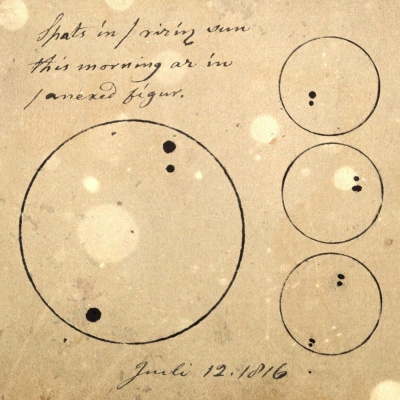 Spats in / rizin sun
this morning as in
/ anexed figur.
Juli 12. 1816